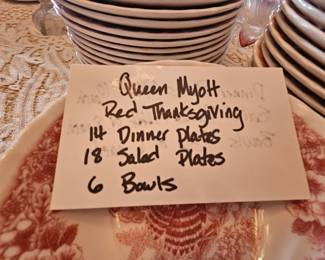 Queen Myott
Red Thanksgiving
14 Dinner Plates
18 Salad Plates
6 Bowls